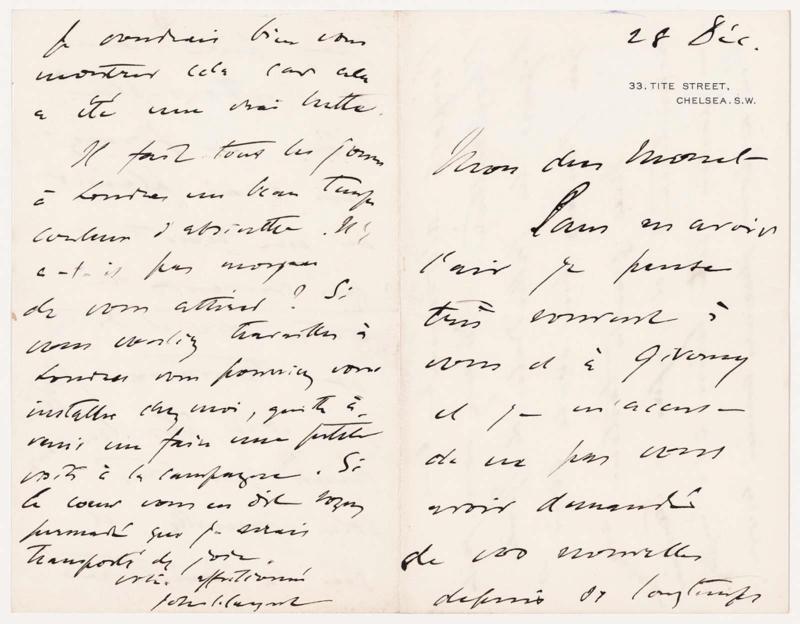 28 Déc.
33. TITE STREET,
CHELSEA. S.W.
Mon cher Monet
Sans en avoir
l'air je pense
très souvent à
vous et à Giverny
et je m'accuse
de ne pas vous
avoir demandé
de vos nouvelles
depuis si longtemps
Je voudrais bien vous
montrer cela car cela
a été une vraie lutte.
Il fait tous les jours
à Londres un beau temps
couleur d'absinthe. N'y
a-t-il pas moyen
de vous attirer? Si
vous vouliez travailler à
Londres vous pourriez vous
installer chez moi, quitte à
venir me faire une petite
visite à la campagne. Si
le coeur vous en dit soyez
persuadé que je serais
transporté de joie.
votre affectionné
John S. Sargent